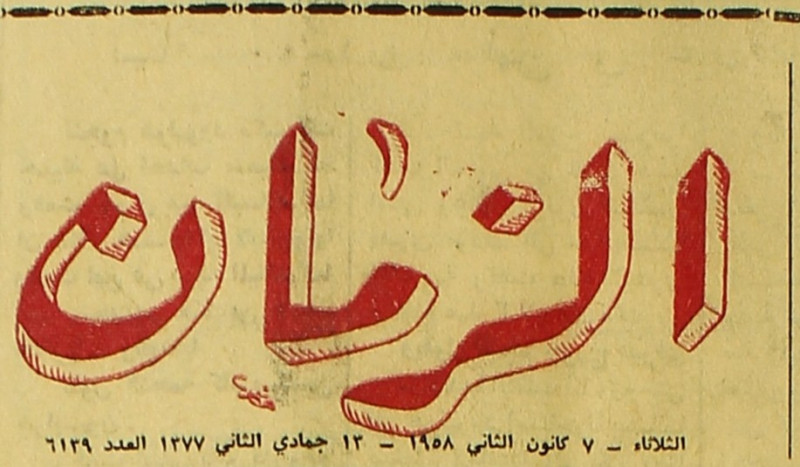 الزمان
الثلاثاء – ٧ كانون الثاني ١٩٥٨ – ١٣ جمادي الثاني ١٣٧٧ العدد ٦١٣٩